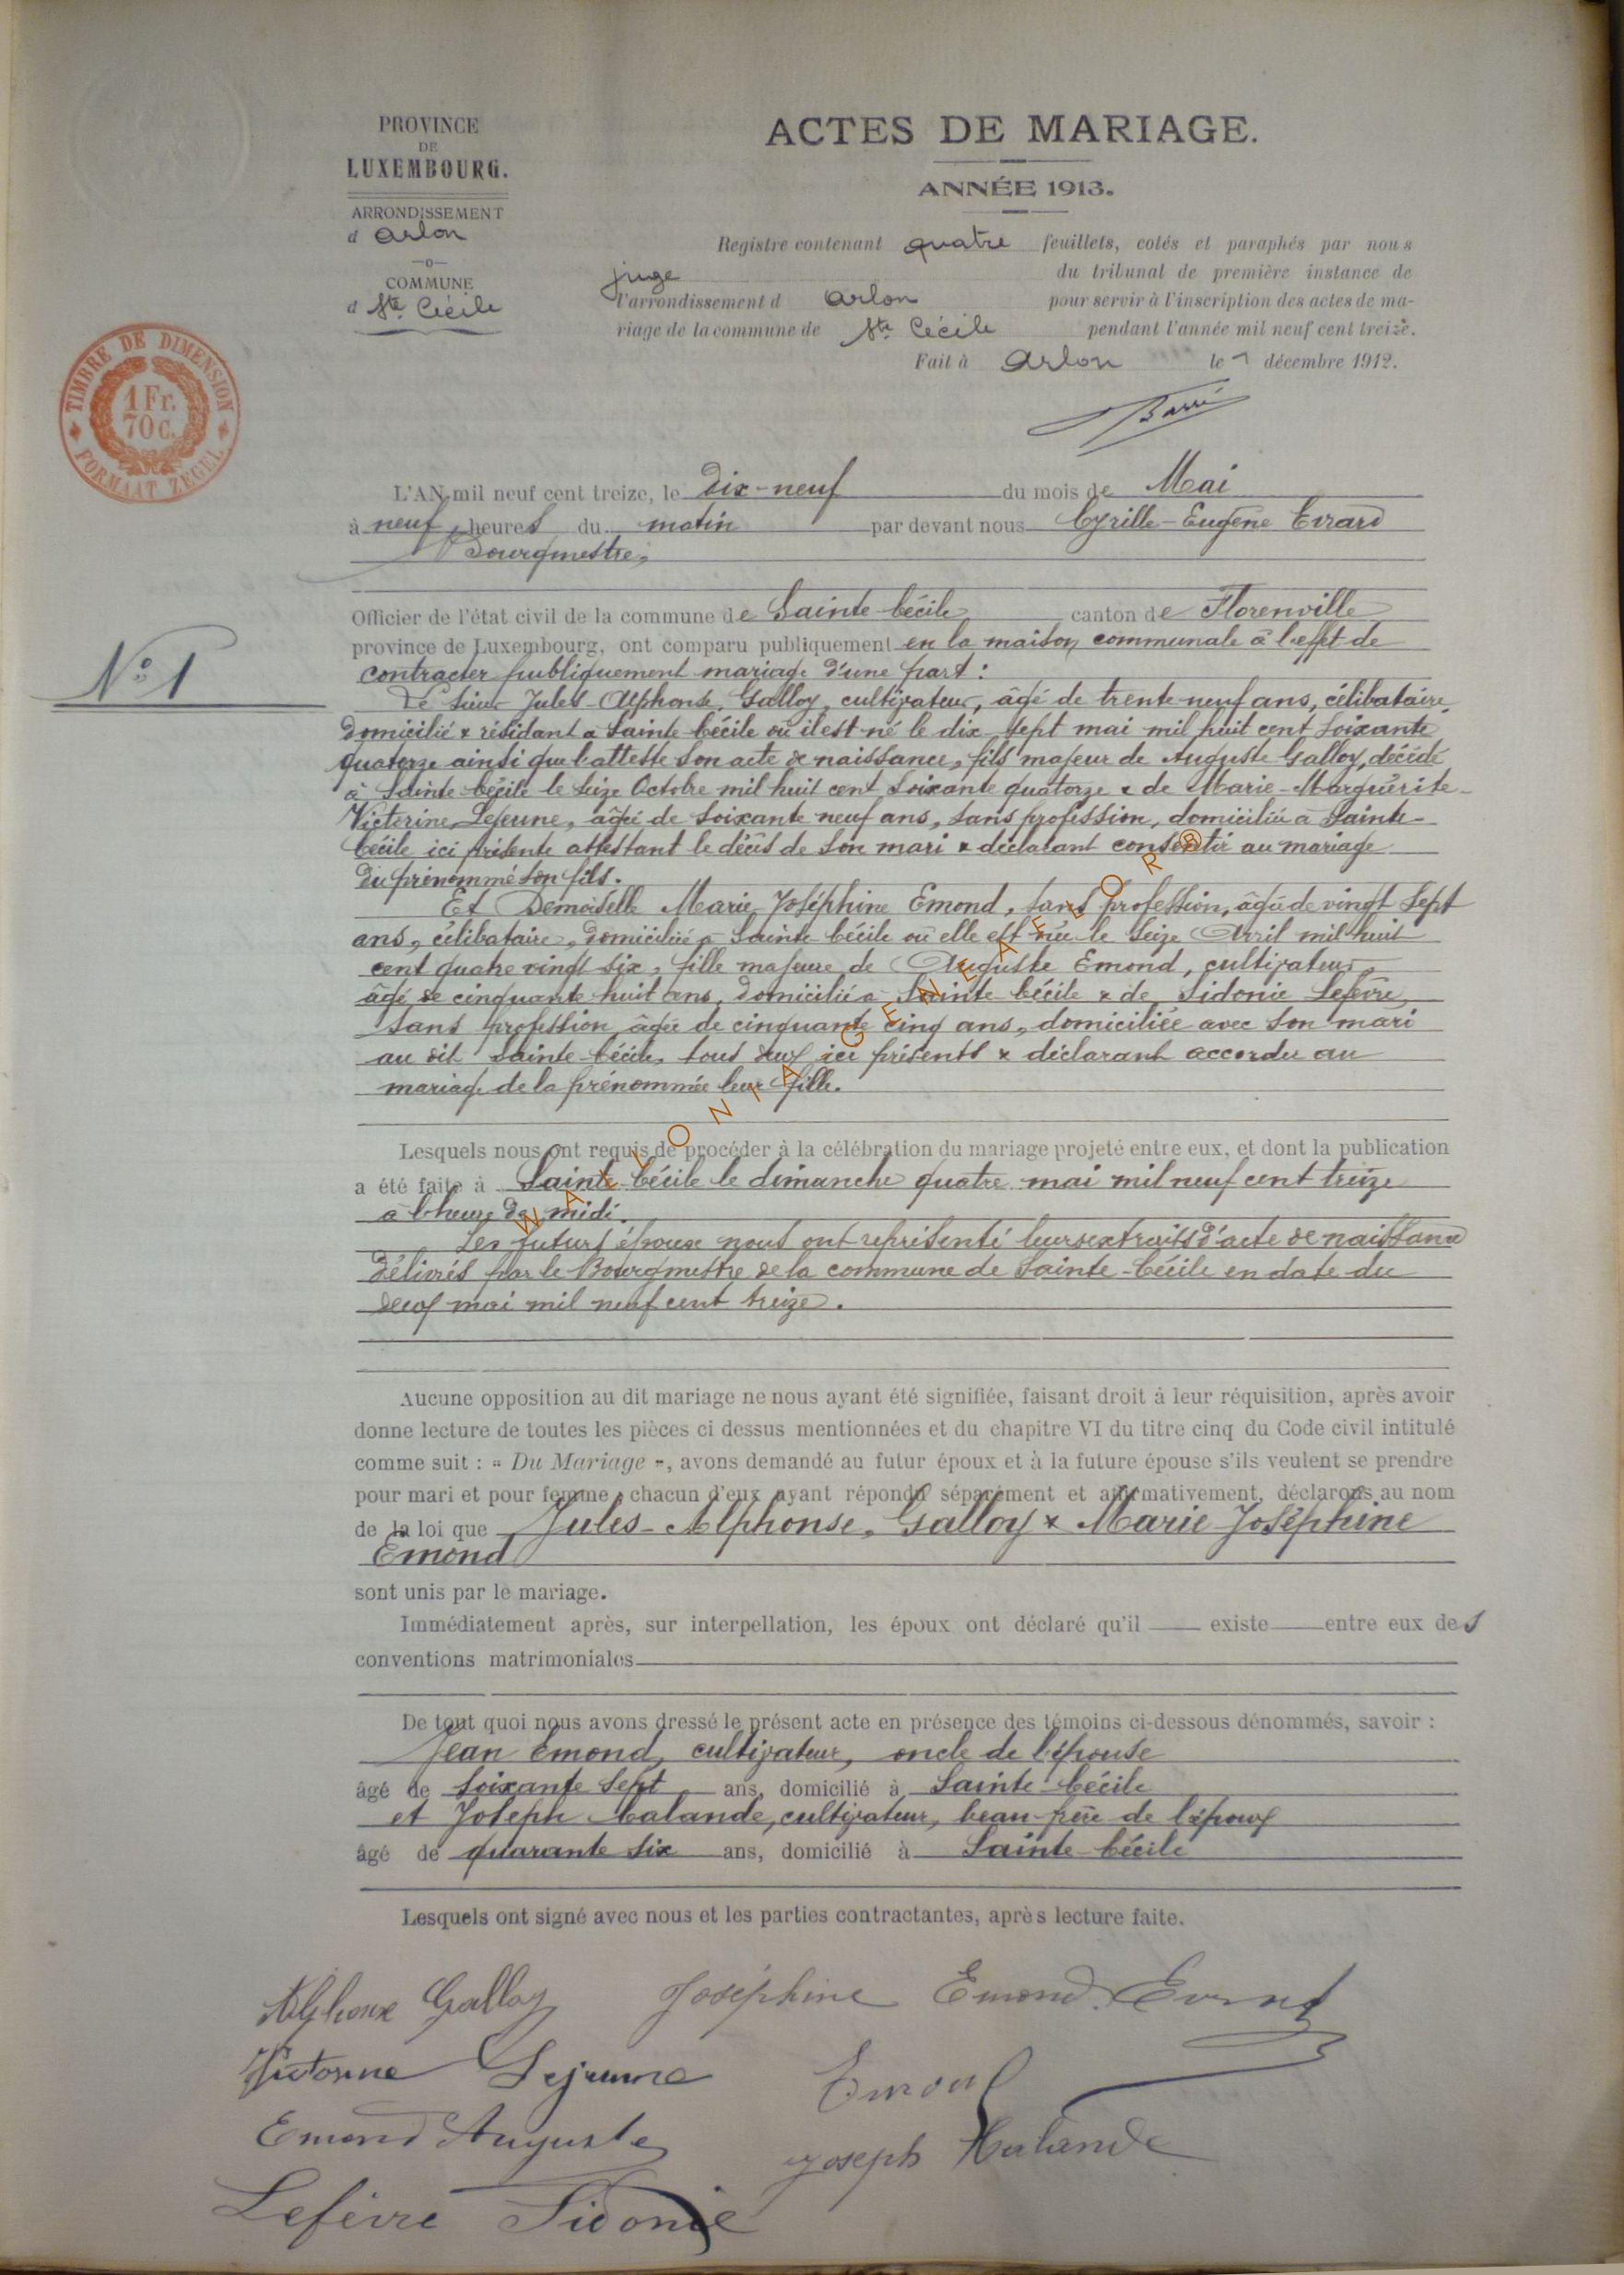 PROVINCE
DE
LUXEMBOURG.
ARRONDISSEMENT
d Arlon
COMMUNE
d Ste Cécile
TIMBRE DE DIMENSION
1 Fr.
70 c.
FORMAAT ZEGEL
ACTES DE MARIAGE.
ANNÉE 1913.
Registre contenant quatre feuillets, cotés et paraphés par nous
juge du tribunal de première instance de
l'arrondissement d Arlon pour servir à l'inscription des actes de ma-
riage de la commune de Ste Cécile pendant l'année mil neuf cent treize.
Fait à Arlon le 7 décembre 1912.
L'AN mil neuf cent treize, le Dix-neuf du mois de Mai
à neuf heures du matin par devant nous Cyrille-Eugène Evrard
Bourgmestre,
Officier de l'état civil de la commune de Sainte-Cécile canton de Florenville
N° 1
province de Luxembourg, ont comparu publiquement en la maison communale à l'effet de
contracter publiquement mariage d'une part :
Le Sieur Jules-Alphonse Galloy, cultivateur, âgé de trente-neuf ans, célibataire,
domicilié & résidant à Sainte-Cécile où il est né le dix-sept mai mil huit cent soixante
quatorze ainsi que l'atteste son acte de naissance, fils majeur de Auguste Galloy, décédé
à Sainte-Cécile le seize Octobre mil huit cent soixante quatorze & de Marie-Marguérite-
Victorine Lejeune, âgée de soixante neuf ans, sans profession, domiciliée à Sainte-
Cécile ici présente attestant le décès de son mari & déclarant consentir au mariage
du prénommé son fils.
Et Demoiselle Marie-Joséphine Emond, sans profession, âgée de vingt sept
ans, célibataire, domiciliée à Sainte-Cécile où elle est née le seize Avril mil huit
cent quatre vingt six, fille majeure de Auguste Emond, cultivateur,
âgé de cinquante huit ans, domicilié à Sainte-Cécile & de Sidonie Lefèvre,
sans profession âgée de cinquante cinq ans, domiciliée avec son mari
au dit Sainte-Cécile, tous deux ici présents & déclarant accorder au
mariage de la prénommée leur fille.
Lesquels nous ont requis de procéder à la célébration du mariage projeté entre eux, et dont la publication
a été faite à Sainte-Cécile le dimanche quatre mai mil neuf cent treize
à l'heure de midi.
Les futurs époux nous ont représenté leurs extraits d'acte de naissance
délivrés par le Bourgmestre de la commune de Sainte-Cécile en date du
deux mai mil neuf cent treize.
Aucune opposition au dit mariage ne nous ayant été signifiée, faisant droit à leur réquisition, après avoir
donne lecture de toutes les pièces ci dessus mentionnées et du chapitre VI du titre cinq du Code civil intitulé
comme suit : « Du Mariage », avons demandé au futur époux et à la future épouse s'ils veulent se prendre
pour mari et pour femme ; chacun d'eux ayant répondu séparément et affirmativement, déclarons au nom
de la loi que Jules-Alphonse Galloy & Marie-Joséphine
Emond
sont unis par le mariage.
Immédiatement après, sur interpellation, les époux ont déclaré qu'il existe entre eux des
conventions matrimoniales
De tout quoi nous avons dressé le présent acte en présence des témoins ci-dessous dénommés, savoir :
Jean Emond, cultivateur, oncle de l'épouse
âgé de soixante sept ans, domicilié à Sainte-Cécile
et Joseph Calande, cultivateur, beau-frère de l'époux
âgé de quarante six ans, domicilié à Sainte-Cécile
Lesquels ont signé avec nous et les parties contractantes, après lecture faite.
Alphonse Galloy Joséphine Emond. Evrard
Victorine Lejeune Emond
Emond Auguste Joseph Kalande
Lefèvre Sidonie
WALLONIA GENEAFLOR ®